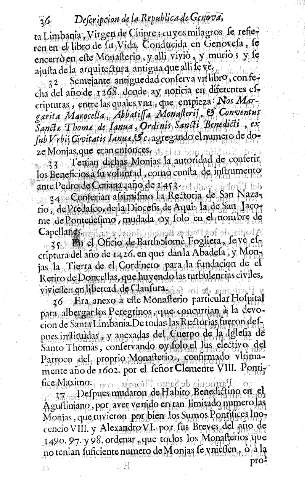 36 Descripcion de la Republica de Genova,
ta Limbania, Virgen de Chipre; cuyos milagros se refie-
ren en el libro de su Vida. Conducida en Genovesa, se
encerrò en este Monasterio, y alli vivió, y murió; y se
ajusta de la arquitectura antigua que alli se vè.
32 Semejante antiguedad conserva vn libro, con fe-
cha del año de 1268. donde ay noticia en diferentes es-
crituras, entre las quales vna, que empieza: Nos Mar-
garita Marocella, Abbatissa Monasterij, & Conventus
Sancti Thome de Ianua, Ordinis Sancti Benedicti, ex
sub Vrbis Civitatis Ianua, &c. agregando el numero de do-
ze Monjas, que eran entonces.
33 Tenian dichas Monjas la autoridad de conferir
los Beneficios a su voluntad, como consta de instrumento
ante Pedro de año de 1453.
34 Conferian assimismo la Rectoria de San Naza-
rio, de de la Diocesis de Aqui: la de San Jaco-
me de Pontedesimo, mudada oy solo en el nombre de
Capellanes.
35 En el Oficio de Bartholomè Foglieta, se vè es-
critura del año de 1426. en que dan la Abadesa, y Mon-
jas la Tierra de el para la fundacion de el
Retiro de Doncellas, que huyendo las turbulencias civiles,
viviessen en libertad de Clausura.
36 Era anexo a este Monasterio particular Hospital
para albergar los Peregrinos, que concurrian à la devo-
cion de Santa Limbania. De todas las Rectorias fueron des-
pues instituidas, y anexadas del Cuerpo de la Iglesia de
Santo Thomàs, conservando oy solo el Ius electivo del
Parroco del proprio Monasterio, confirmado vltima-
mente año de 1602. por el señor Clemente VIII. Ponti-
fice Maximo.
37 Despues mudaron de Habito Benedictino en el
Agustiniano, por aver venido en tan limitado numero las
Monjas, que tuvieron por bien los Sumos Pontifices Ino-
cencio VIII. y Alexandro VI. por sus Breves del año de
1490. 97. y 98. ordenar, que todos los Monasterios que
no tenian suficiente numero de Monjas se vniessen, ò à la
pro-